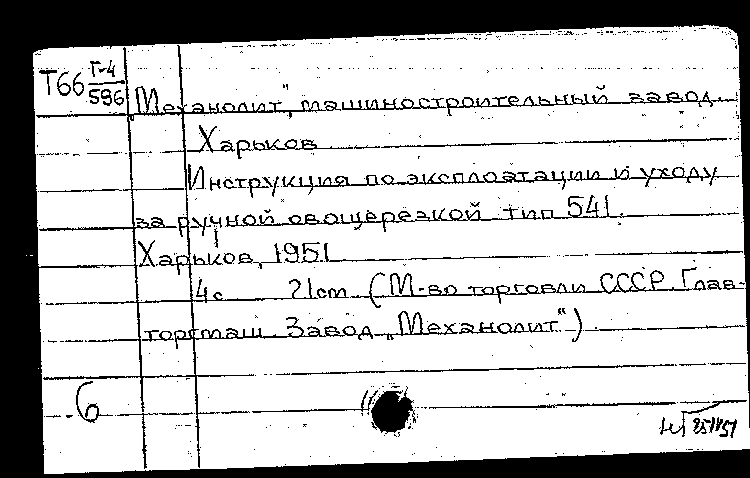 Т66 Т-4/596
„Механолит", машиностроительный завод.
Харьков
Инструкция по эксплоатации и уходу
за ручной овощерезкой тип 541.
Харьков, 1951
4с 21cm (М-во торговли СССР. Глав-
торгмаш. Завод „Механолит")
6